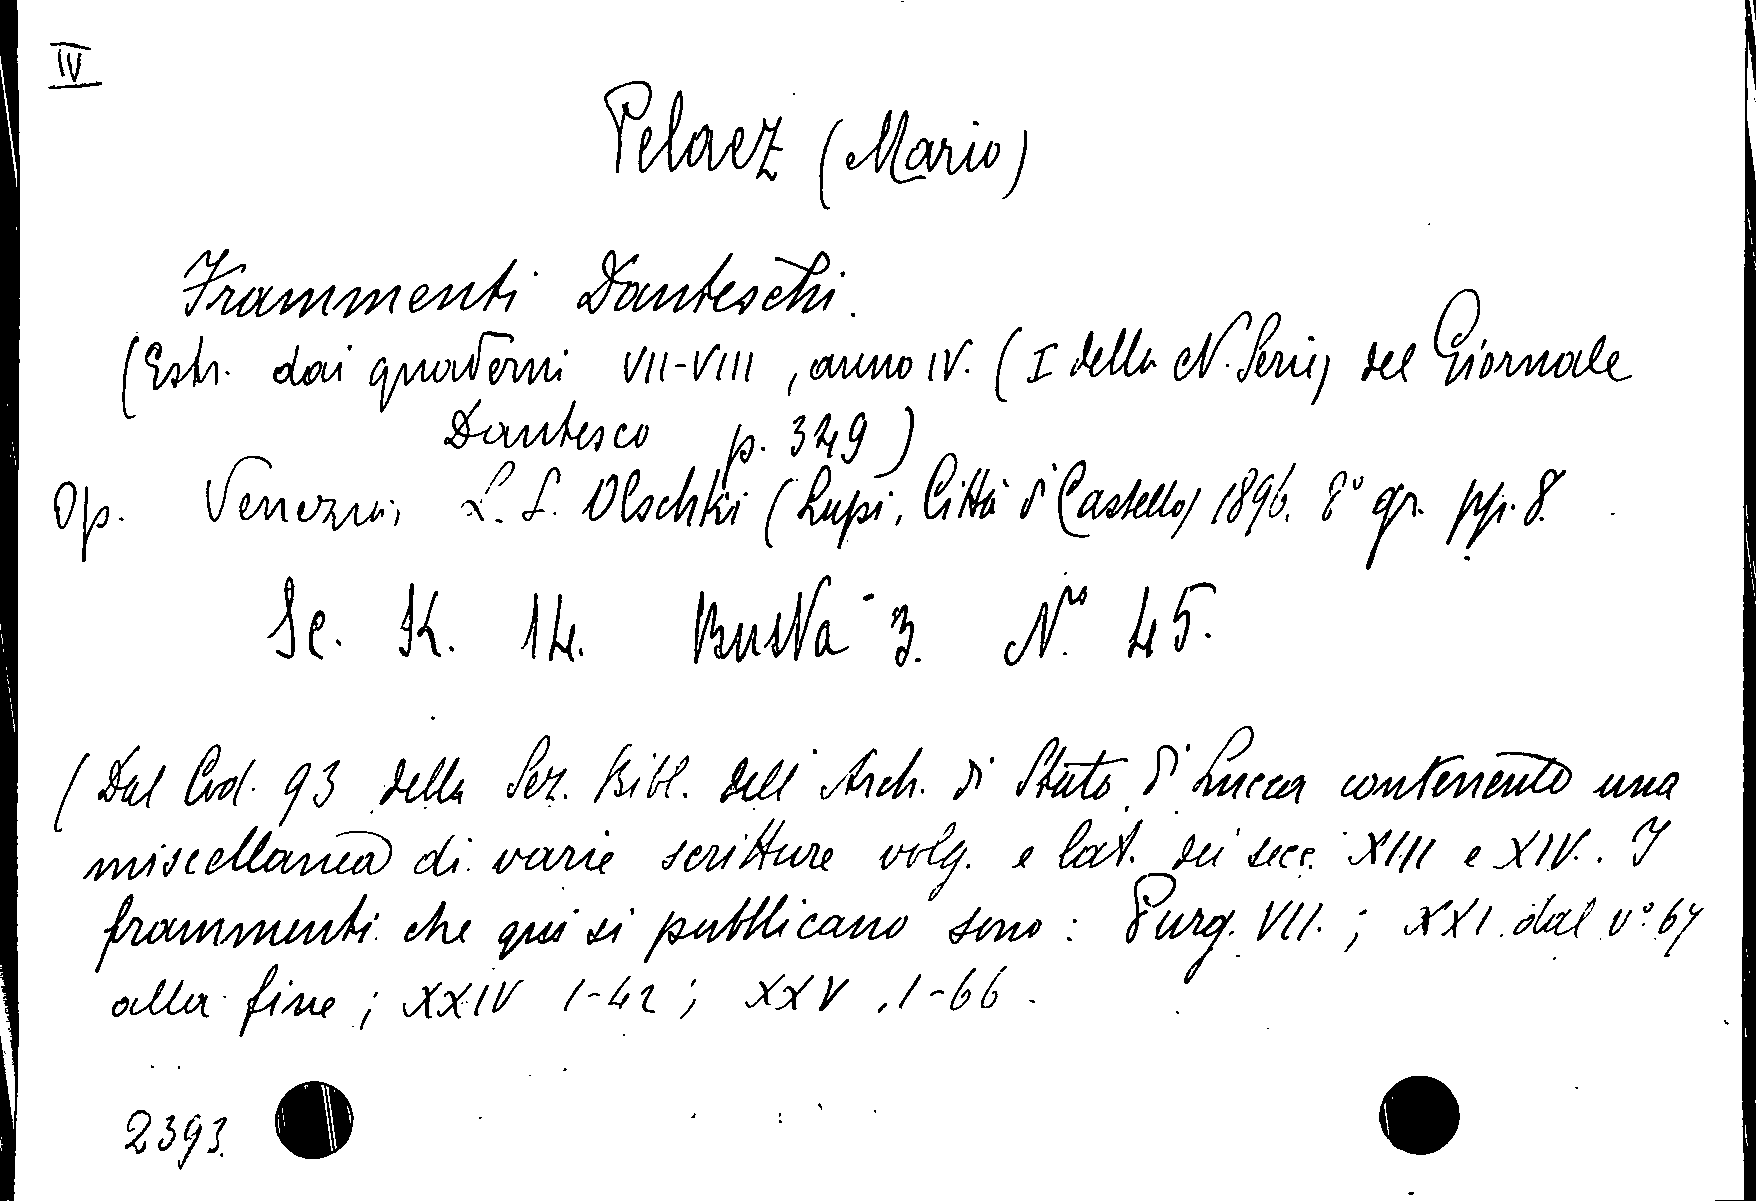 IV
Pelaez (Mario)
Frammenti Danteschi.
(Estr. dai quaderni VII-VIII, anno IV. (I della N. Serie) del Giornale
Dantesco p. 349)
Op. Venezia, L. S. Olschki (Lupi, Città di Castello) 1896. 8° gr. pp. 8.
Sc. K. 14. Busta 3. N.° 45.
(Dal Cod. 93 della Sez. Bibl. dell'Arch. di Stato di Lucca contenente una
miscellanea di varie scritture volg. e lat. dei secc. XIII e XIV. I
frammenti che qui si pubblicano sono: Purg. VII.; XXI dal v.° 67
alla fine; XXIV 1-42; XXV, 1-66.
2393.